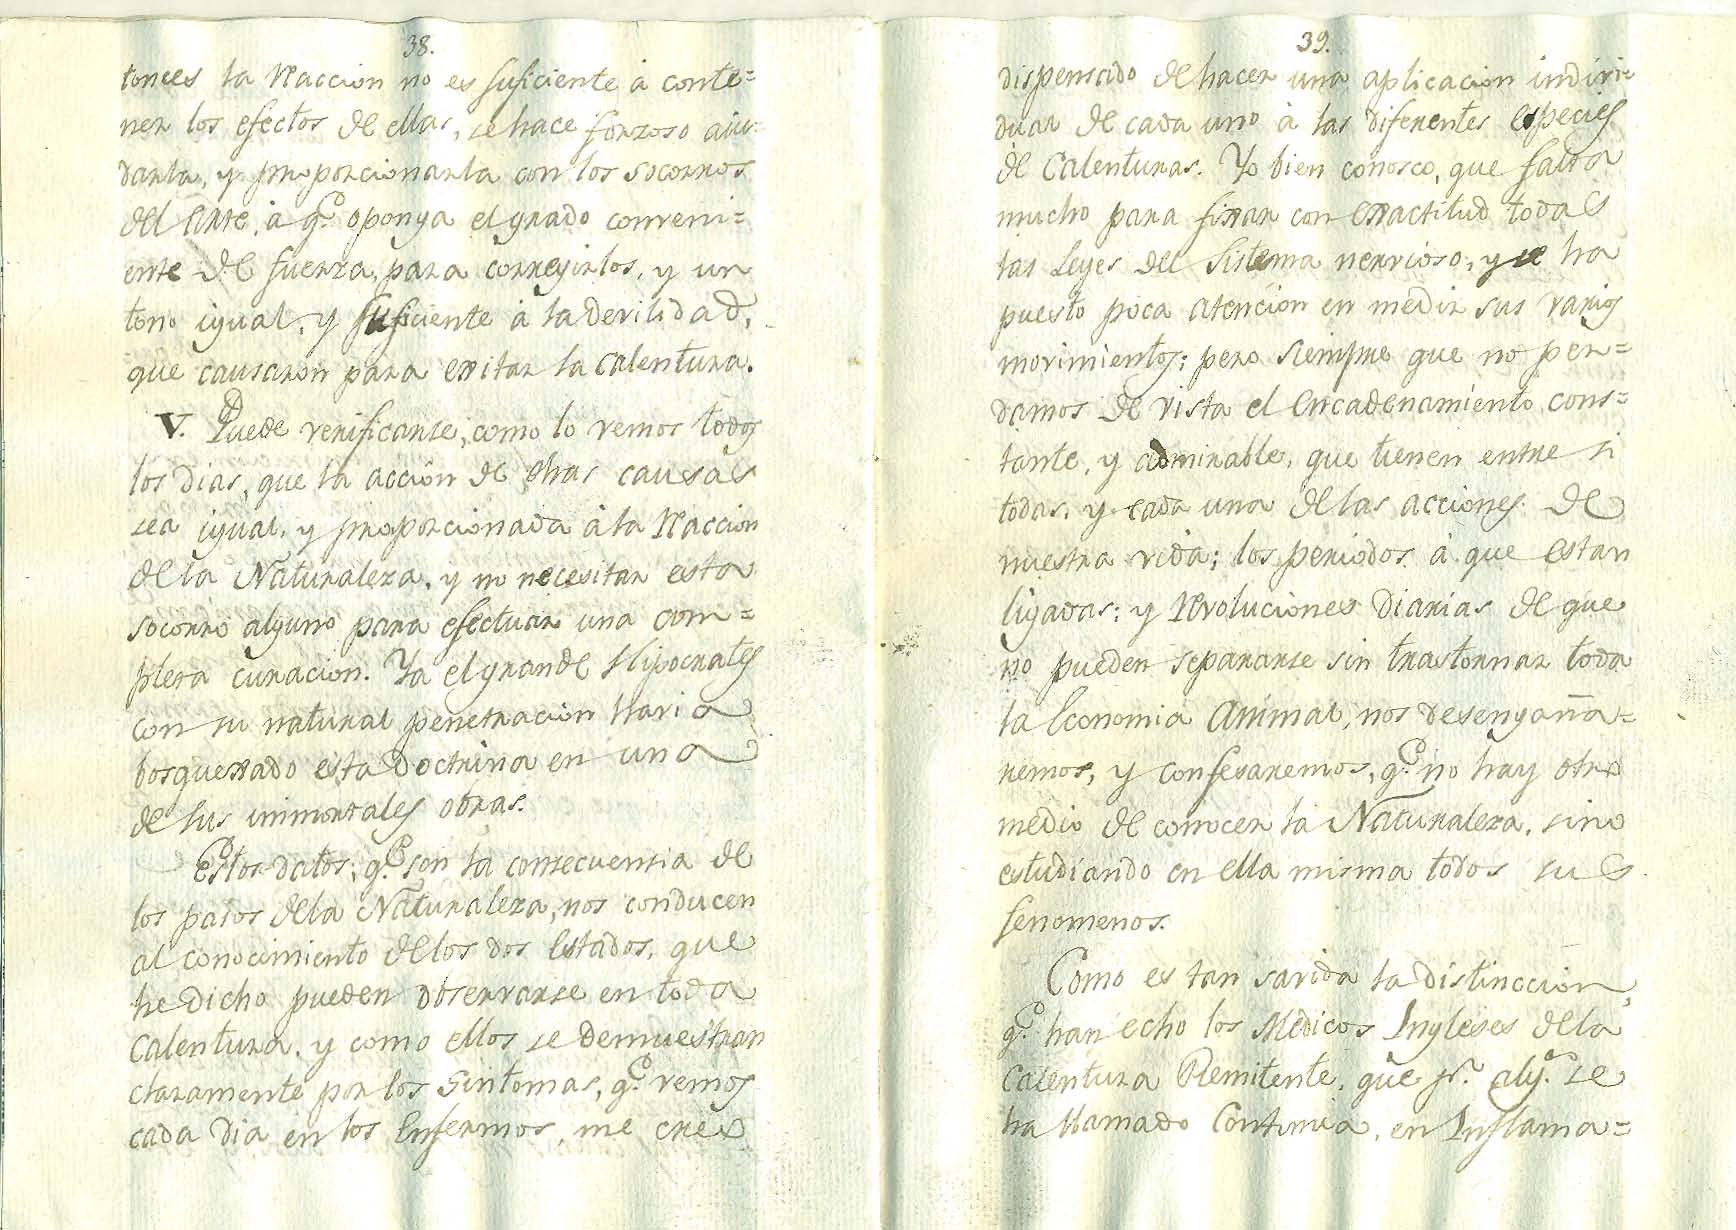 38.
tonces la Reaccion no es suficiente á conte=
ner los efectos de ellas, se hace forzoso aiu=
darla, y proporcionarla con los socorros
del Arte, á q.e oponga el grado conveni=
ente de fuerza, para corregirlos, y un
tono igual, y suficiente á la devilidad,
que causaron para exitar la Calentura.
V. Puede verificarse, como lo vemos todos
los dias, que la accion de otras causas
sea igual, y proporcionada á la Reaccion
de la Naturaleza, y no necesitar esta
socorro alguno para efectuar una com=
pleta curacion. Ya el grande Hipocrates
con su natural penetracion havia
bosquexado esta Doctrina en una
de sus immortales obras.
Estos datos, q.e son la consecuensia de
los pasos de la Naturaleza, nos conducen
al conocimiento de los dos Estados, que
he dicho pueden observarse en toda
Calentura, y como ellos se demuestran
claramente por los Sintomas, q.e vemos
cada dia en los Enfermos, me creo
39.
dispensado de hacer una aplicacion indivi=
dual de cada uno á las diferentes especies
de Calenturas. Yo bien conosco, que falta
mucho para fixar con exactitud todas
las Leyes del Sistema nervioso, y se ha
puesto poca atencion en medir sus varios
movimientos; pero siempre que no per=
damos de vista el encadenamiento cons=
tante, y admirable, que tienen entre si
todas, y cada una de las acciones de
nuestra vida; los periodos á que estan
ligadas; y Revoluciones Diarias de que
no pueden separarse sin trastornar toda
la Economia Animal, nos desengaña=
remos, y confesaremos, q.e no hay otro
medio de conocer la Naturaleza, sino
estudiando en ella misma todos sus
fenomenos.
Como es tan savida la distinccion,
q.e han echo los Medicos Ingleses de la
Calentura Remitente, que p.r alg.s se
ha llamado Continua, en Inflama=